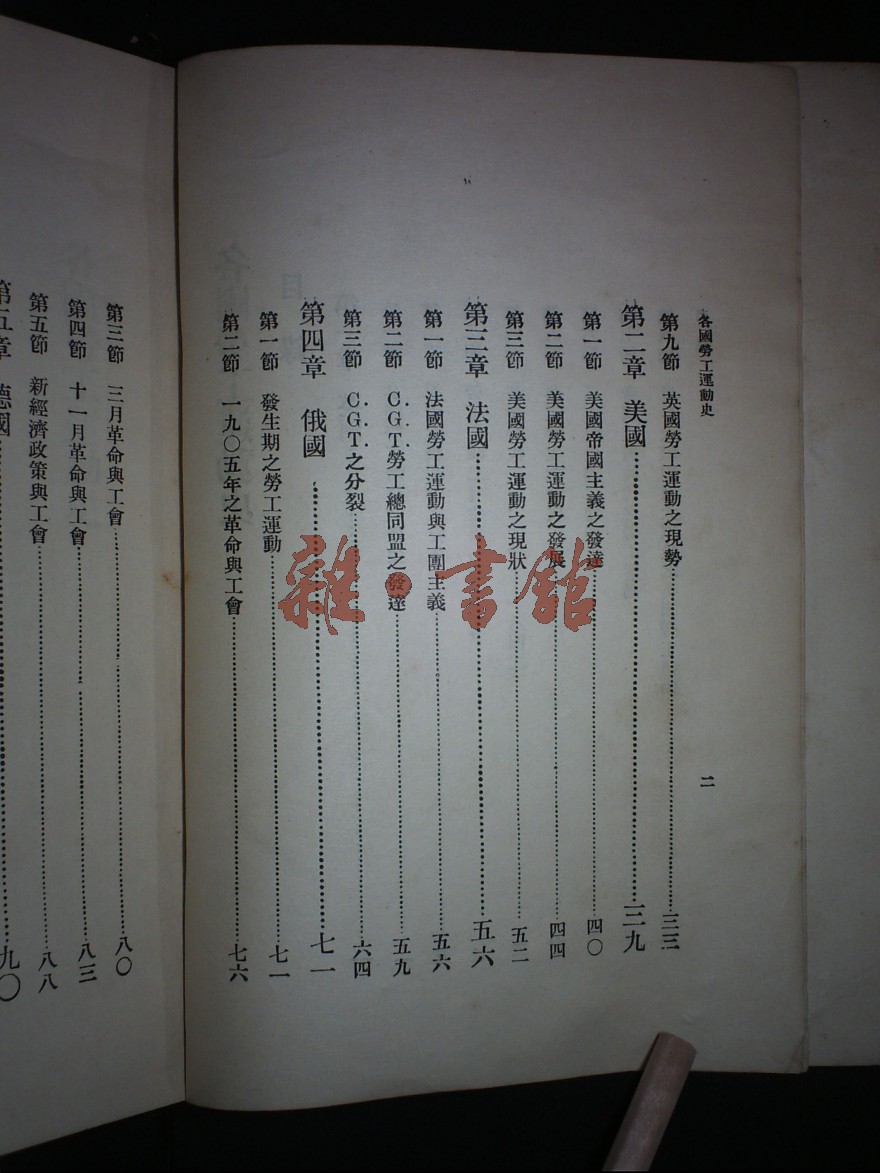 各國勞工運動史
二
第九節 英國勞工運動之現勢 三三
第二章 美國 三九
第一節 美國帝國主義之發達 四〇
第二節 美國勞工運動之發展 四四
第三節 美國勞工運動之現狀 五二
第三章 法國 五六
第一節 法國勞工運動與工團主義 五六
第二節 C.G.T.勞工總同盟之發達 五九
第三節 C.G.T.之分裂 六四
第四章 俄國 七一
第一節 發生期之勞工運動 七一
第二節 一九〇五年之革命與工會 七六
第三節 三月革命與工會 八〇
第四節 十一月革命與工會 八三
第五節 新經濟政策與工會 八八
第五章 德國 九〇
雜·書館